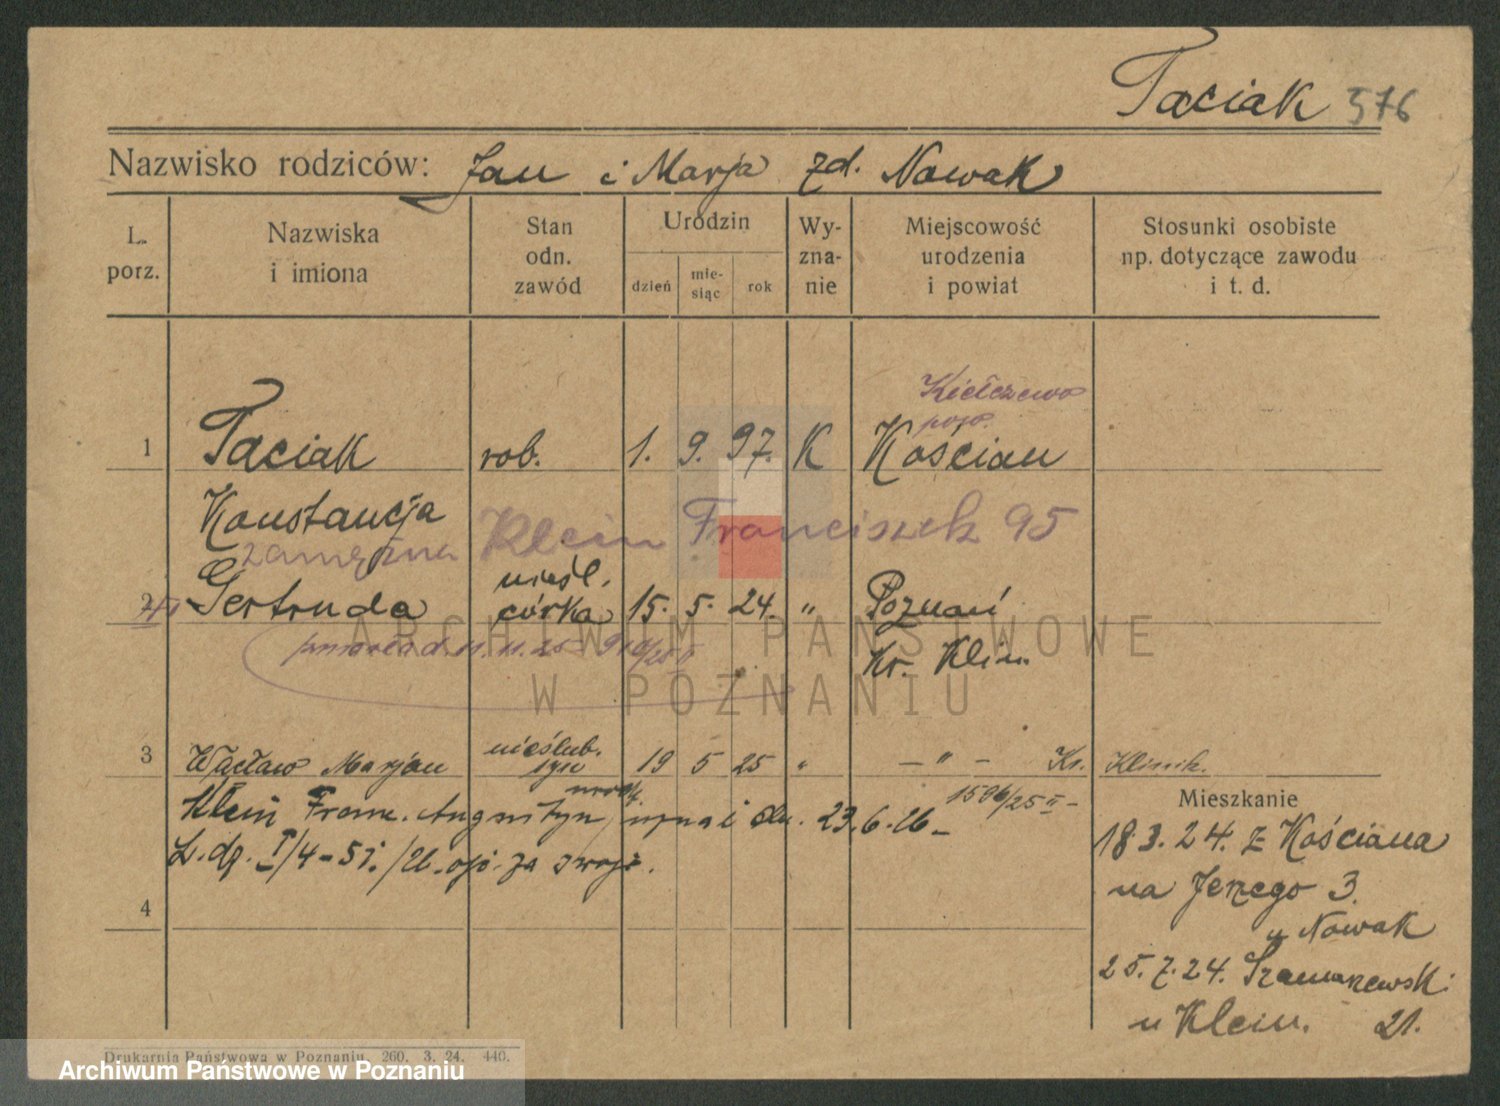 Taciak 576
Nazwisko rodziców: Jan i Marja zd. Nowak
L. porz.
Nazwiska i imiona
Stan odn. zawód
Urodzin
dzień
mie-siąc
rok
Wy-zna-nie
Miejscowość urodzenia i powiat
Stosunki osobiste np. dotyczące zawodu i t. d.
Kiełczewo
pow.
1 Taciak rob. 1. 9. 97. K Kościan
Konstancja
zamężna Klein Franciszek 95
nieśl.
2 Gertruda córka 15. 5. 24. " Poznań
zmarła d. 11. 11. 25
Kr. Klin.
nieślub.
3 Wacław Marjan syn 19 5 25 " — " — Kr. Klinik.
1596/25 II
Klein Franc. Augustyn uznał dn. 23.6.26
L. dz. I/4 za swoje.
4
Mieszkanie
18.3.24. z Kościana
na Jerzego 3.
u Nowak
25.7.24. Szamarzewski
u Klein. 21.
Drukarnia Państwowa w Poznaniu. 260. 3. 24. 440.
ARCHIWUM PAŃSTWOWE
W POZNANIU
Archiwum Państwowe w Poznaniu